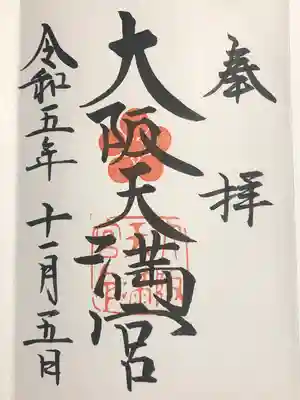 奉拝
大阪天満宮
令和五年 十一月五日